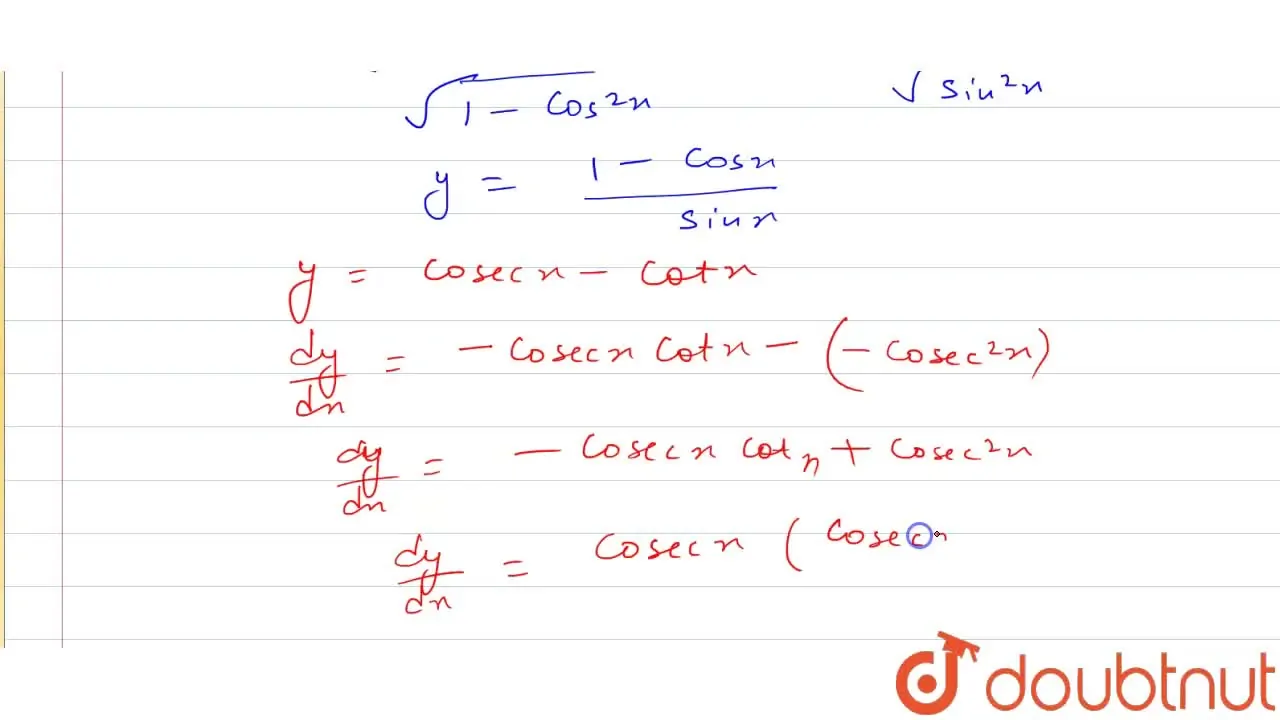 √1 - Cos²x √Sin²x
y = (1 - Cosx)/Sinx
y = Cosecx - Cotx
dy/dx = - Cosecx Cotx - (- Cosec²x)
dy/dx = - Cosecx Cotx + Cosec²x
dy/dx = Cosecx ( Cosecx
doubtnut